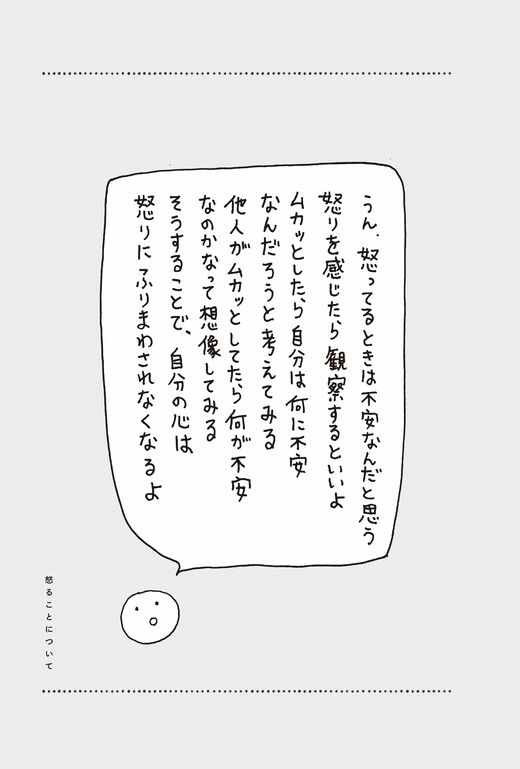 うん、怒ってるときは不安なんだと思う
怒りを感じたら観察するといいよ
ムカッとしたら自分は何に不安
なんだろうと考えてみる
他人がムカッとしてたら何が不安
なのかなって想像してみる
そうすることで、自分の心は
怒りにふりまわされなくなるよ
怒ることについて